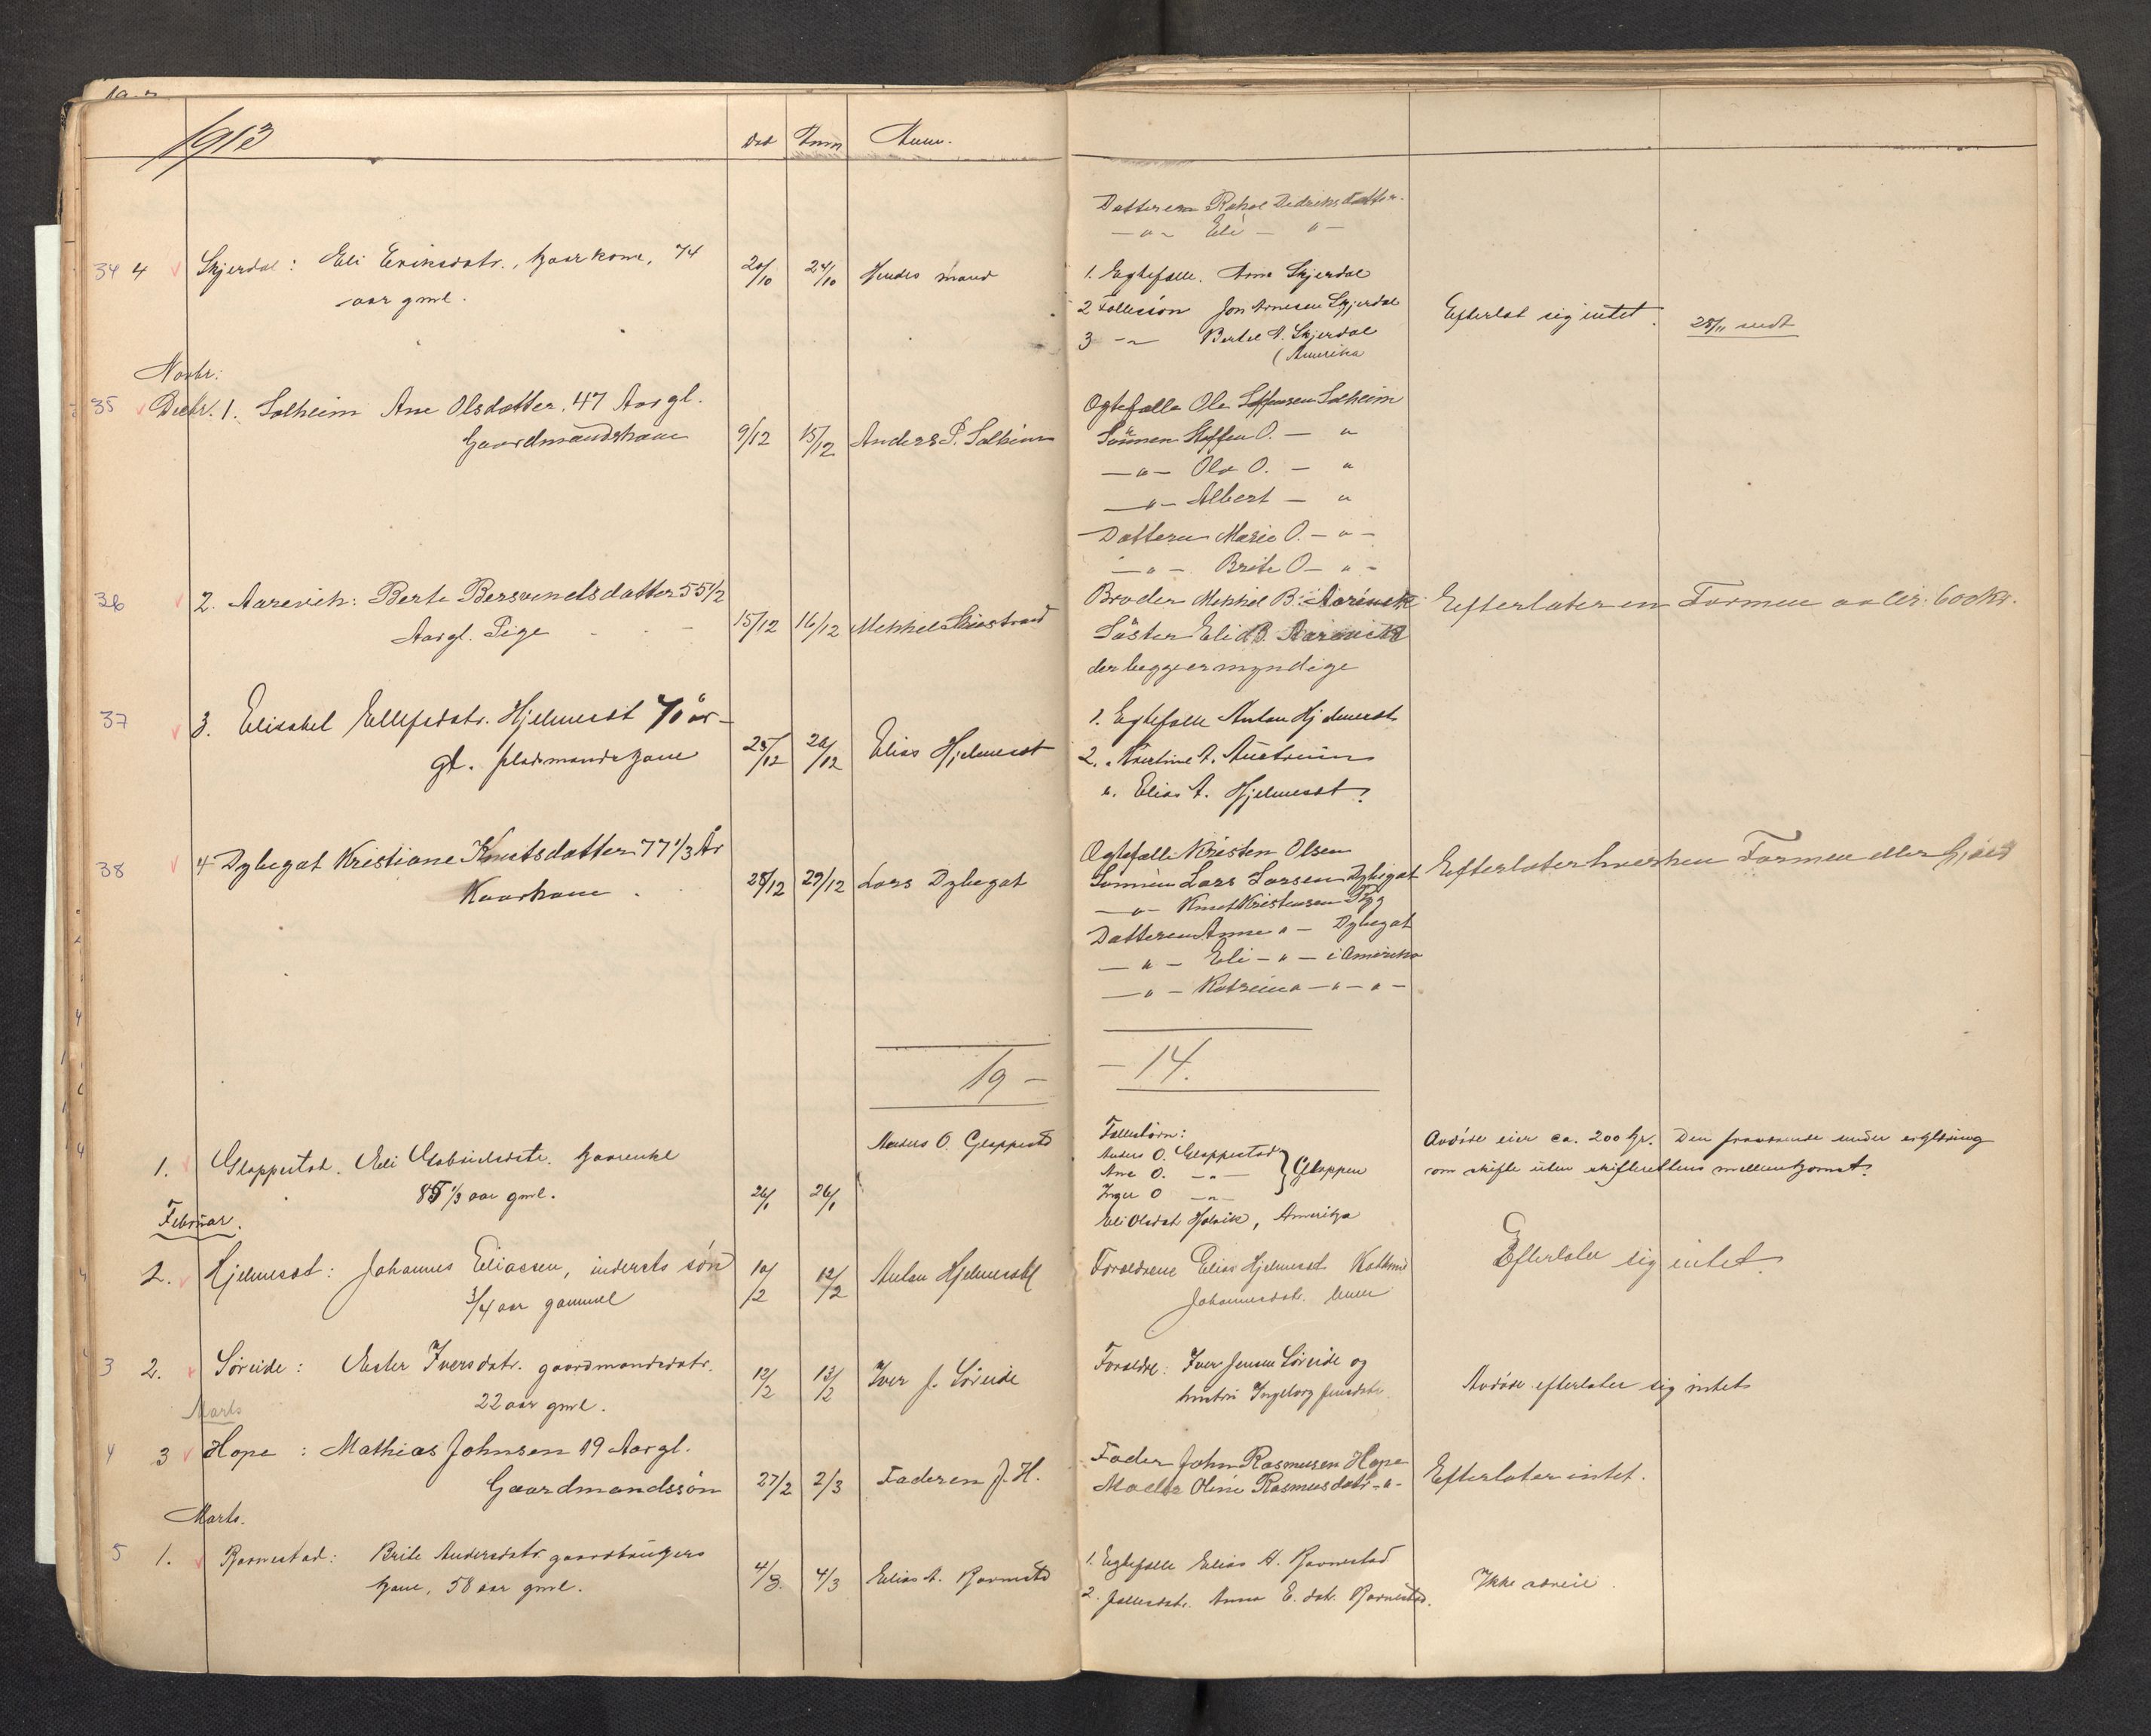 1913
Död Anm Anm.
Datteren Rakel Dedriksdatter.
—"— Eli — " —
34 4 Skjerdal: Eli Eriksdatr., kaarkone, 74 20/10 24/10 Hendes mand 1. Egtefælle. Arne Skjerdal
aar gml. 2 Fællessön Jon Arnesen Skjerdal Efterlot sig intet. 28/11 sendt
3 —"— Bertel A. Skjerdal
(Amerika
Novbr:
35 Decbr. 1. Solheim Ane Olsdatter. 47 Aargl. Ogtefælle Ole Steffensen Solheim
Gaardmandskone 9/12 15/12 Anders P. Solheim Sönnen Steffen O. — "
—"— Ola O. — "
—"— Albert — "
Datteren Marie O. — " —
—"— Brite O — " —
36 2. Aarevik: Berte Bersvendsdatter 55 1/2 Broder Mekkel B. Aarevik Efterlater en Formue av cir. 600 Kr.
Aargl. Pige 15/12 16/12 Mekkel Söster Eli B. Aarevik
der begge er myndige
37 3. Elisabet Ellefsdatr. Hjelmeset 70 år 1. Egtefælle Anton Hjelmeset
gl. pladsmandskone 25/12 26/12 Elias Hjelmeset 2. Kristine A. Austreim
". Elias A. Hjelmeset.
38 4 Dybegat Kristiane Knutsdatter 77 1/3 År Ogtefælle Kristen Olsen
Kaarkone. 28/12 29/12 Lars Dybegat Sönnen Lars Larsen Dybegat Efterlater hverken Formue eller Gjæld
—"— Knut Kristensen Rygg
Datteren Anne " — Dybegat
—"— Eli — " — i Amerika
—"— Katrina — " — " —
19 — — 14.
1. Gloppestad. Eli Gabrielsdatr. kaarenke Anders O. Gloppestad Fællesbörn: Avdöde eier ca. 200 kr. Den fraværende under erklæring
85 1/3 aar gml. 26/1 26/1 Anders O. Gloppestad om skifte uten skifterettens mellemkomst.
Ane O. —"— } Gloppen
Inger O —"—
Eli Olsdat Holvik, Amerika
Februar.
2. Hjelmeset: Johannes Eliassen, inderts sön 10/2 12/2 Anton Hjelmeset Forældrene Elias Hjelmeset Kathrine Efterlater sig intet.
3/4 aar gammel Johannesdatr. hmen
3 2. Söreide: Ester Iversdatr. gaardmandsdatr. 12/2 13/2 Iver J. Söreide Forældre: Iver Jensen Söreide og Avdöde efterlater sig intet
22 aar gml. hustru Ingeborg Jensdatr.
Marts
4 3 Hope: Mathias Johnsen 19 Aargl. Fader John Rasmusen Hope
Gaardmandssön 27/2 2/3 Faderen J. H. Moder Oline Rasmusdatr - " - Efterlater intet.
Marts.
5 1. Ravnestad: Brite Andersdatr. gaardbrugers 4/3. 4/3 Elias A. Ravnestad 1. Egtefælle Elias A. Ravnestad Ikke særeie.
kone, 58 aar gml. 2. fællesdatr. Anna E. datr. Ravnestad.